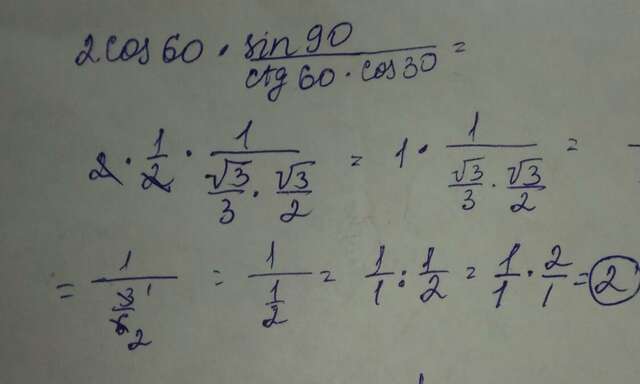 2cos60 · sin90/(ctg60 · cos30) =
2 · 1/2 · 1/(√3/3 · √3/2) = 1 · 1/(√3/3 · √3/2) =
= 1/(3/6) = 1/(1/2) = 1/1 : 1/2 = 1/1 · 2/1 = 2